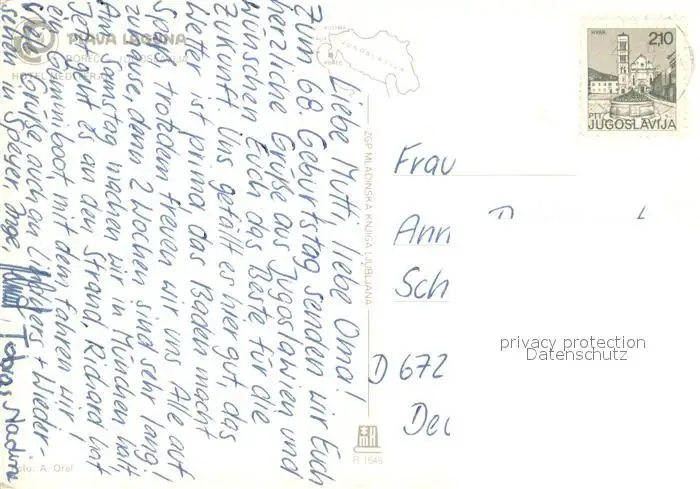 PLAVA LAGUNA
POREČ - JUGOSLAVIJA
HOTEL MEDITERAN
JUGOSLAVIJA
POREČ
Liebe Mutti, liebe Oma!
Zum 68. Geburtstag senden wir Euch
herzliche Grüße aus Jugoslawien und
wünschen Euch das Beste für die
Zukunft. Uns gefällt es hier gut, das
Wetter ist prima, das Baden macht
Spaß. Trotzdem freuen wir uns Alle auf
zuhause, denn 2 Wochen sind sehr lang!
Am Samstag machen wir in München halt,
Jetzt geht es an den Strand. Richard hat
ein Gummiboot, mit dem fahren wir!
Viele Grüße auch an + Wieder-
sehen in Speyer, Inge
Tobias Nadine
Foto: A. Orel
ZGP MLADINSKA KNJIGA LJUBLJANA
R 1648
HVAR
2,10
PTT
JUGOSLAVIJA
Frau
Ann
Sch
D 672
Deu
privacy protection
Datenschutz